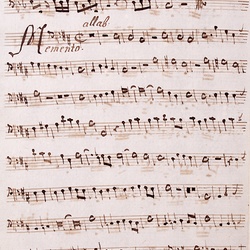 allab
Memento.